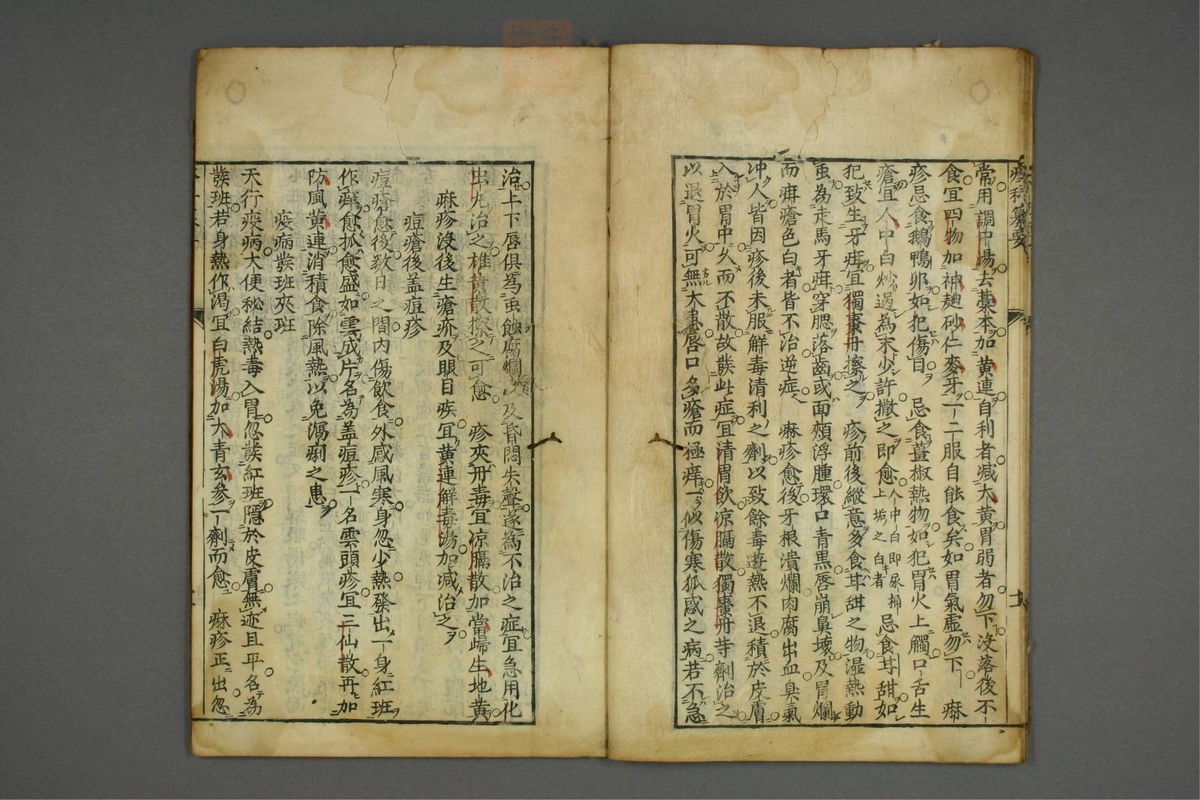 常用調中湯去藁本加黄連自利者减大黄胃弱者勿下没落後不
食宜四物加神麹砂仁麥牙一二服自能食矣如胃氣虚勿下 麻
疹忌食鵝鴨卵如犯傷目 忌食薑椒熱物如犯胃火上觸口舌生
瘡宜人中白炒過為末少許撒之即愈 人中白即尿桶上垢之白者 忌食甘甜如
犯致生牙疳宜獨棗丹擦之 疹前後縱意多食甘甜之物湿熱動
虫為走馬牙疳穿腮落齒或面頰浮腫環口青黒唇崩鼻壊及胃爛
而痺瘡色白者皆不治逆症 麻疹愈後牙根潰爛肉腐出血臭氣
冲人皆因疹後未服解毒清利之劑以致餘毒遊熱不退積於皮膚
入於胃中久而不散故發此症宜清胃飲凉膈散獨棗丹等劑治之
以退胃火可無大患唇口多瘡而極痒一似傷寒狐惑之病若不急
治上下唇俱爲虫蝕腐爛以及昏悶失聲遂為不治之症宜急用化
出九治之雄黄散擦之可愈 疹夾丹毒宜凉膈散加當歸生地黄
麻疹没後生瘡疥及眼目疾宜黄連解毒湯加减治之
痘瘡後盖痘疹
痘瘡愈後数日之間内傷飲食外感風寒身忽少熱發出一身紅班
作痒愈抓愈盛如雲成片名為盖痘疹一名雲頭疹宜三仙散再加
防風黄連消積食除風熱以免瀉痢之患
疫病發班夾班
天行疫病大便秘結熱毒入胃忽發紅班隱於皮膚無迹且平名為
發班若身熱作渇宜白虎湯加大青玄参一劑而愈 麻疹正出忽